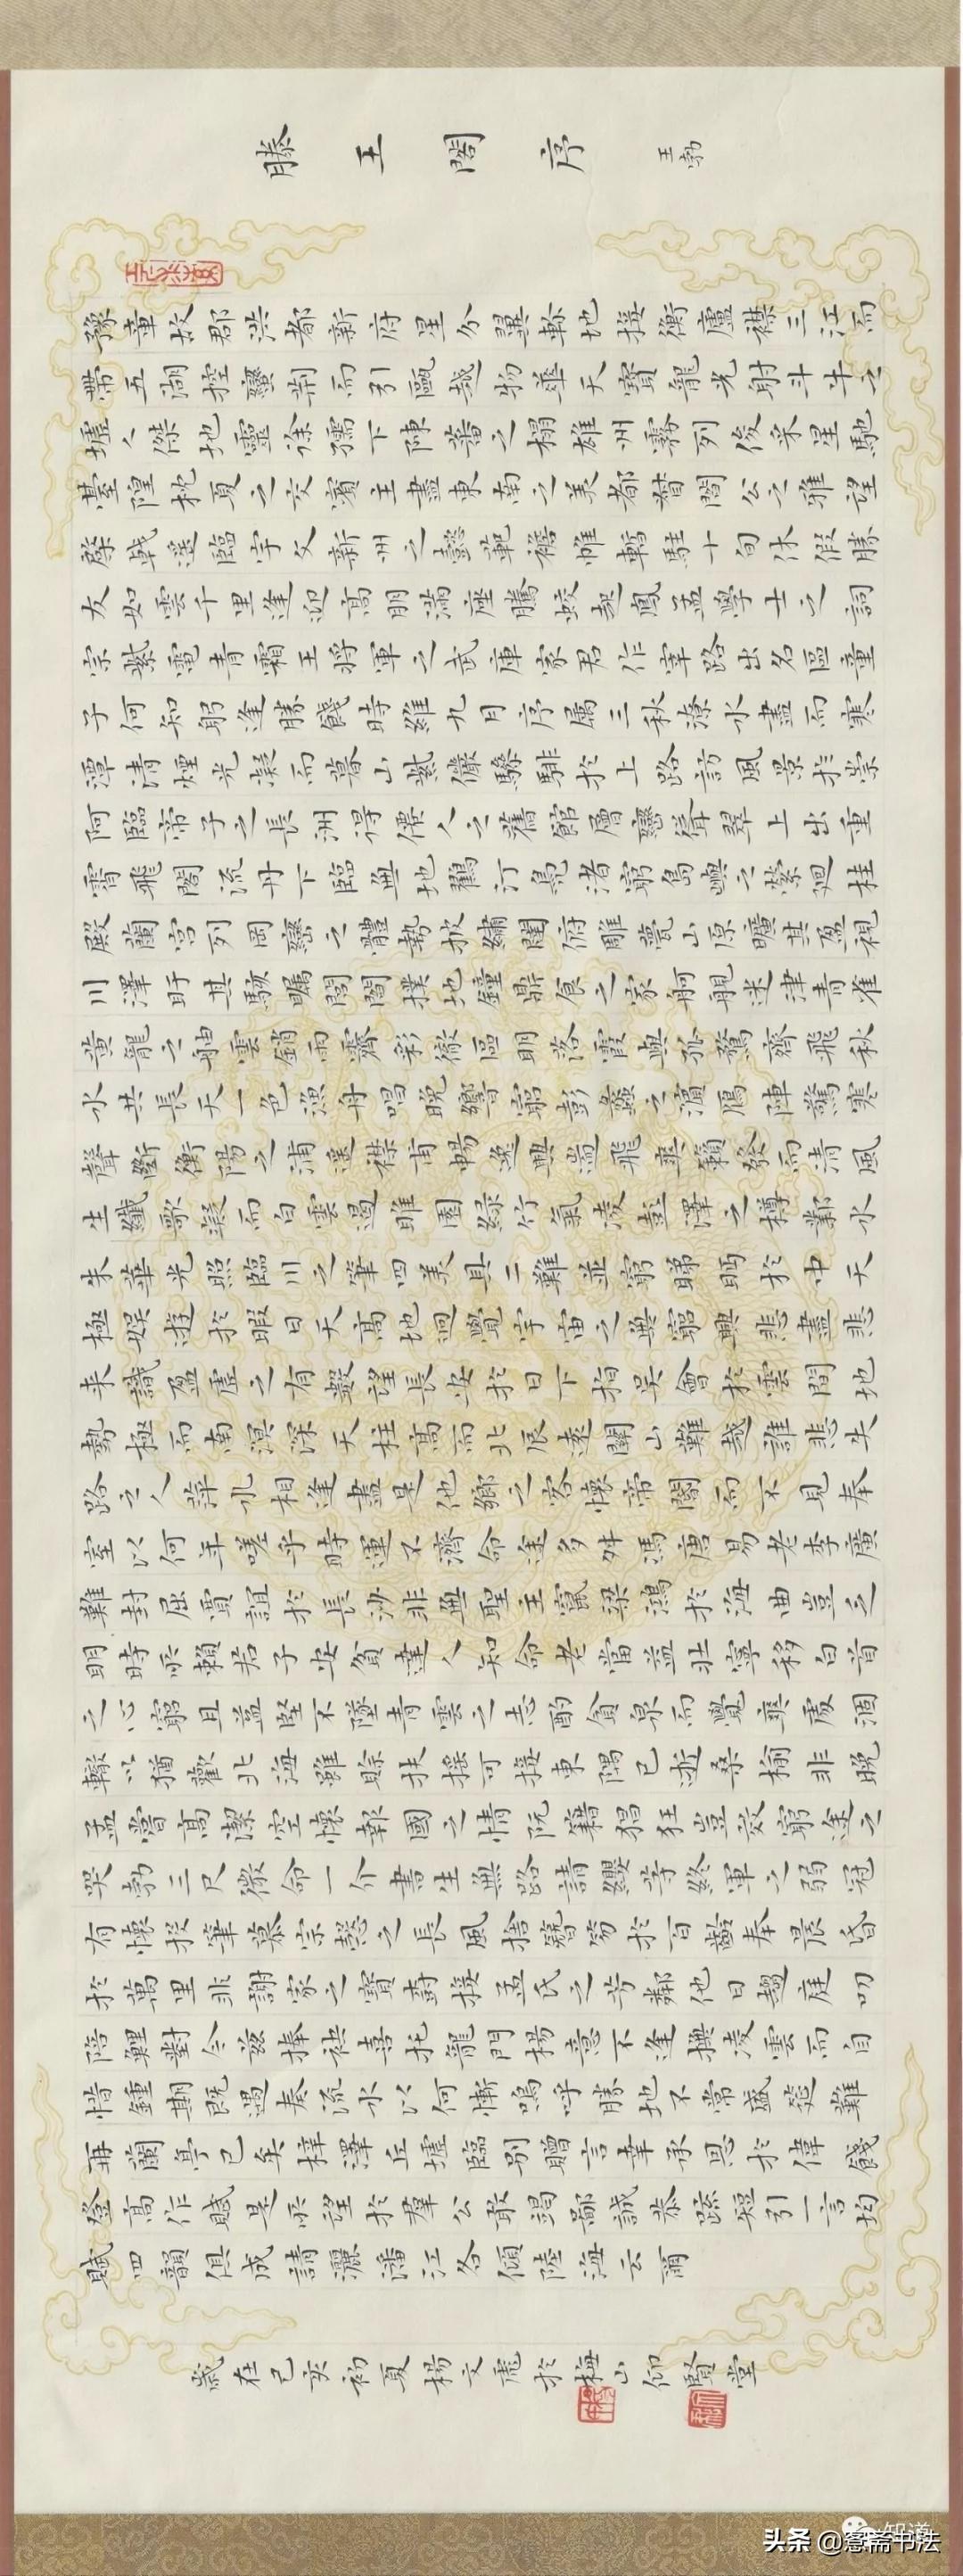 滕王閣序 王勃
豫章故郡洪都新府星分翼軫地接衡廬襟三江而
帶五湖控蠻荆而引甌越物華天寶龍光射斗牛之
墟人傑地靈徐孺下陳蕃之榻雄州霧列俊采星馳
臺隍枕夏之交賓主盡東南之美都督閻公之雅望
棨戟遥臨宇文新州之懿範襜帷暫駐十旬休假勝
友如雲千里逢迎高朋滿座騰蛟起鳳孟學士之詞
宗紫電青霜王將軍之武庫家君作宰路出名區童
子何知躬逢勝餞時維九月序屬三秋潦水盡而寒
潭清煙光凝而暮山紫儼驂騑於上路訪風景於崇
阿臨帝子之長洲得僊人之舊館層巒聳翠上出重
霄飛閣流丹下臨無地鶴汀鳧渚窮島嶼之縈迴桂
殿蘭宮列岡巒之體勢披繡闥俯雕甍山原曠其盈視
川澤盱其駭矚閭閻撲地鐘鼎食之家舸艦迷津青雀
黃龍之舳雲銷雨霽彩徹區明落霞與孤鶩齊飛秋
水共長天一色漁舟唱晚響窮彭蠡之濱鴈陣驚寒
聲斷衡陽之浦遥襟甫暢逸興遄飛爽籟發而清風
生纖歌凝而白雲遏睢園綠竹氣凌彭澤之樽鄴水
朱華光照臨川之筆四美具二難並窮睇眄於中天
極娛遊於暇日天高地迥覺宇宙之無窮興悲盡悲
來識盈虛之有數望長安於日下指吳會於雲間地
勢極而南溟深天柱高而北辰遠關山難越誰悲失
路之人萍水相逢盡是他鄉之客懷帝閽而不見奉
室以何年嗟乎時運不濟命途多舛馮唐易老李廣
難封屈賈誼於長沙非無聖主竄梁鴻於海曲豈乏
明時所賴君子安貧達人知命老當益壯寧移白首
之心窮且益堅不墜青雲之志酌貪泉而覺爽處涸
轍以猶歡北海雖賒扶搖可接東隅已逝桑榆非晚
孟嘗高潔空懷報國之情阮籍猖狂豈效窮途之
哭勃三尺微命一介書生無路請纓等終軍之弱冠
有懷投筆慕宗愨之長風捨簪笏於百齡奉晨昏
於萬里非謝家之寶樹接孟氏之芳鄰他日趨庭叨
陪鯉對今茲捧袂喜托龍門楊意不逢撫凌雲而自
惜鍾期既遇奏流水以何慚嗚呼勝地不常盛筵難
再蘭亭已矣梓澤丘墟臨别贈言幸承恩於偉餞
登高作賦是所望於羣公敢竭鄙誠恭疏短引一言均
賦四韻俱成請灑潘江各傾陸海云爾
歲在己亥初夏楊文虎於梅山仰賢堂
知道
头条 @窓斋书法